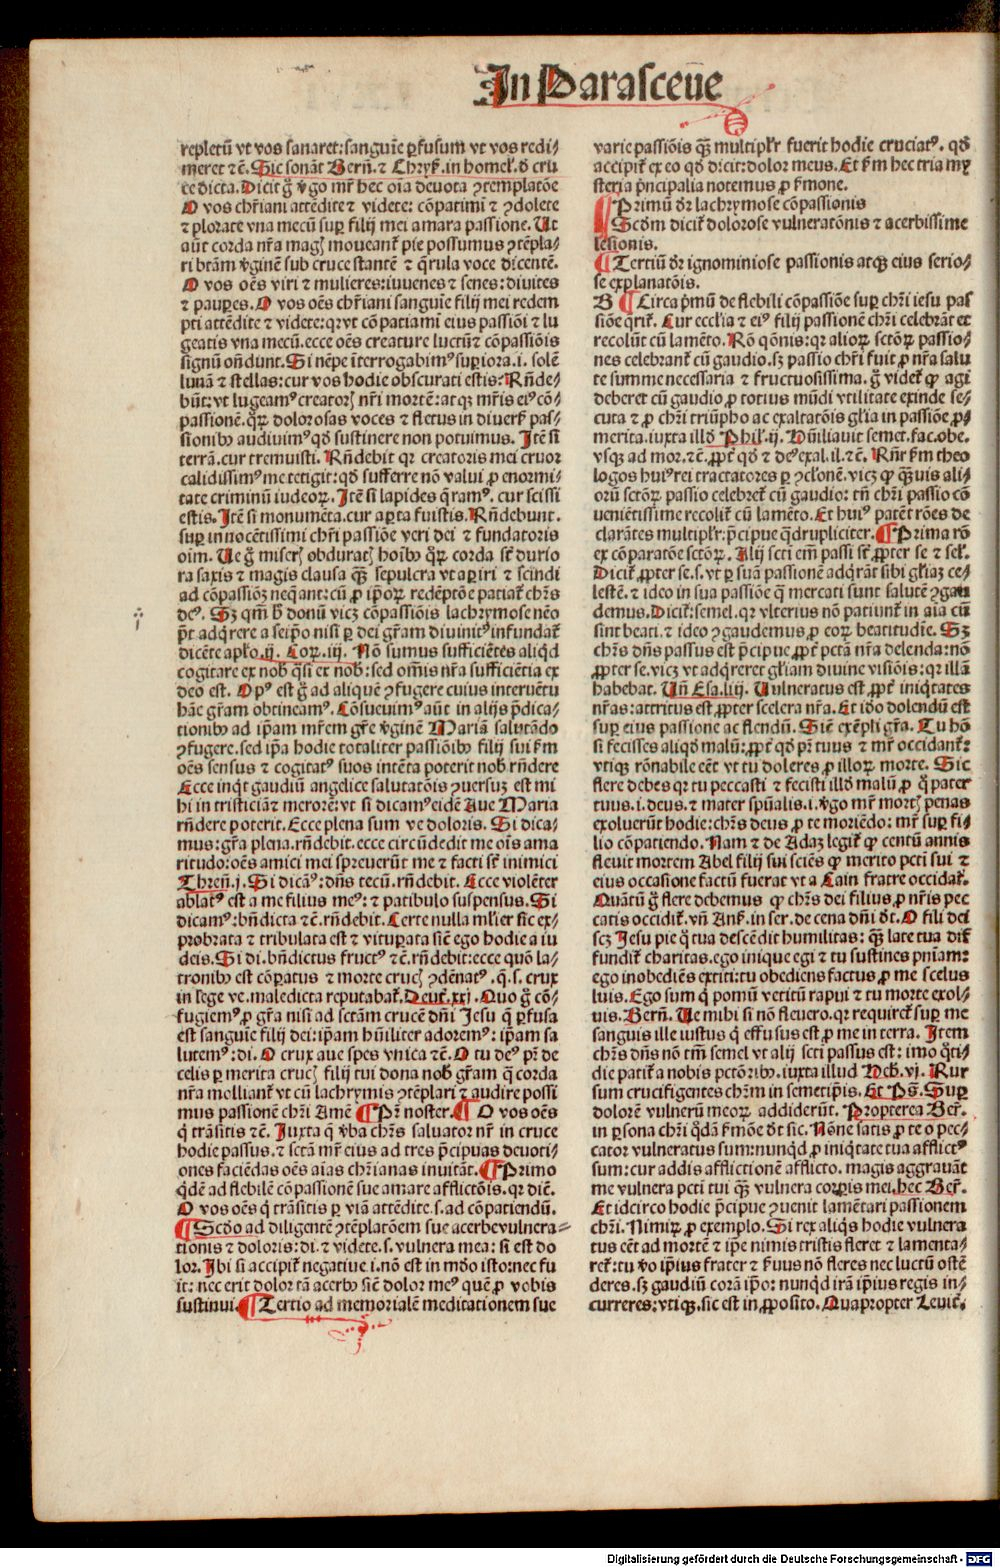 In Parasceue
repletū vt vos sanaret: sanguīe ꝑfusum vt vos redi-
meret ⁊c̄. Sic sonāt Bern̄. ⁊ Chryſ. in homel̕. d̄ cru
ce dicta. Dicit g̊ v̊go mr̄ hec oīa deuota ꝯtemplatōe
O vos chr̄iani attēdite ⁊ videte: cōpatimī ⁊ ꝯdolete
⁊ plorate vna mecū suꝑ filij mei amara passione. Ut
aūt corda nr̄a magꝭ moueant̕ pie possumus ꝯtēpla-
ri btām v̊ginē sub cruce stantē ⁊ q̄rula voce dicentē.
O vos oēs viri ⁊ mulieres: iuuenes ⁊ senes: diuites
⁊ pauꝑes. O vos oēs chr̄iani sanguīe filij mei redem
pti attēdite ⁊ videte: qr vt cōpatiami eius passiōi ⁊ lu
geatis vna mecū. ecce oēs creature luctū ⁊ cōpassiōis
signū oñdunt. Si nēpe īterrogabimꝰ suꝑiora. i. solē
lunā ⁊ stellas: cur vos hodie obscurati estis: Rn̄de-
būt: vt lugeamꝰ creatorꝭ nr̄i mortē: atqꝫ mr̄is eiꝰ cō-
passionē. qꝝ dolorosas voces ⁊ fletus in diuerſ pas-
sionibꝰ audiuimꝰ qd̄ sustinere non potuimus. Itē si
terrā. cur tremuisti. Rn̄debit qr creatoris mei cruor
calidissimꝰ me tetigit: qd̄ sufferre nō valui ꝓ enormi-
tate criminū iudeoꝝ. Itē si lapides q̄ramꝰ. cur scissi
estis. Itē si monumēta. cur aꝑta fuistis. Rn̄debunt.
suꝑ innocētissimi chr̄i passiōe veri dei ⁊ fundatoris
oim. Ue g̊ miserꝭ obduratꝭ hoībꝰ qꝝ corda st̄ durio
ra saxis ⁊ magis clausa qꝫ sepulcra vt aꝑiri ⁊ scindi
ad cōpassiōꝫ neq̄ant: cū ꝓ ip̄oꝝ redēptōe patiat̕ chr̄s
deꝰ. Sꝫ qm̄ h̄ donū vicꝫ cōpassiōis lachrymose nēo
p̄t adq̄rere a seip̄o nisi ꝑ dei gr̄am diuinitꝰ infundat̕
dicēte apl̕o. ij. Coꝝ. iij. Nō sumus sufficiētes aliqd
cogitare ex nob̕ q̄si ex nob̕: sed om̄is nr̄a sufficiētia ex
deo est. Opꝰ est g̊ ad aliquē ꝯfugere cuius interuētu
hāc gr̄am obtineamꝰ. Cōsueuimꝰ aūt in alijs p̄dica-
tionibꝰ ad ip̄am mr̄em gr̄e v̊ginē Mariā salutādo
ꝯfugere. sed ip̄a hodie totaliter passiōibꝰ filij sui ẜm
oēs sensus ⁊ cogitatꝰ suos intēta poterit nob̕ rn̄dere
Ecce inq̄t gaudiū angelice salutatōis ꝯuersuꝫ est mi
hi in tristiciā ⁊ merorē: vt si dicamꝰ eidē Aue Maria
rn̄dere poterit. Ecce plena sum ve doloris. Si dica-
mus: gr̄a plena. rn̄debit. ecce circūdedit me oīs ama
ritudo: oēs amici mei spreuerūt me ⁊ facti st̄ inimici
Thren̄. j. Si dicāꝰ: dn̄s tecū. rn̄debit. Ecce violēter
ablatꝰ est a me filius meꝰ: ⁊ patibulo suspensus. Si
dicamꝰ: bn̄dicta ⁊c̄. rn̄debit. Certe nulla ml̕ier sic ex-
probrata ⁊ tribulata est ⁊ vituꝑata siĉ ego hodie a iu
deis. Si di. bn̄dictus fructꝰ ⁊c̄. rn̄debit: ecce quō la-
tronibꝰ est cōꝑatus ⁊ morte crucꝭ ꝯdēnatꝰ. q. s. crux
in lege ve. maledicta reputabat̕. Deut̕. xxj. Quo g̊ cō-
fugiemꝰ ꝓ gr̄a nisi ad sctām crucē dn̄i Jesu q̄ ꝑfusa
est sanguīe filij dei: ip̄am hūiliter adoremꝰ: ip̄am sa
lutemꝰ: di. O crux aue spes vnica ⁊c̄. O tu deꝰ pr̄ de
celis ꝑ merita crucꝭ filij tui dona nob̕ gr̄am q̄ corda
nr̄a molliant̕ vt cū lachrymis ꝯtēplari ⁊ audire possi
mus passionē chr̄i Amē ¶ Pr̄ noster. ¶ O vos oēs
q̇ trāsitis ⁊c̄. Juxta q̄ v̊ba chr̄s saluator nr̄ in cruce
hodie passus. ⁊ sctā mr̄ eius ad tres p̄cipuas deuoti-
ones faciēdas oēs aīas chr̄ianas inuitāt. ¶ Primo
q̇dē ad flebilē cōpassionē sue amare afflictōis. qr diē.
O vos oēs q̇ trāsitis ꝑ viā attēdite. s. ad cōpatiendū.
¶ Scd̄o ad diligentē ꝯtēplatōem sue acerbe vulnera-
tionis ⁊ doloris: di. ⁊ videte. s. vulnera mea: si est do
lor. Ibi si accipit̕ negatiue. i. nō est in mūdo isto: nec fu
it: nec erit dolor tā acerbꝰ siĉ dolor meꝰ quē ꝓ vobis
sustinui. ¶ Tertio ad memorialē meditationem sue
varie passiōis qꝫ multipl̕r fuerit hodie cruciatꝰ. qd̄
accipit̕ ex eo qd̄ dicit: dolor meus. Et ẜm hec tria my
steria p̄ncipalia notemus ꝓ ẜmone.
¶ Primū dr̄ lachrymose cōpassionis
Scdm dicit̕ dolorose vulneratōnis ⁊ acerbissime
lesionis.
¶ Tertiū dr̄ ignominiose passionis atqꝫ eius serio-
se explanatōis.
B ¶ Circa p̄mū de flebili cōpassiōe suꝑ chr̄i iesu pas
siōe q̄rit̕. Cur eccl̕ia ⁊ eiꝰ filij passionē chr̄i celebrāt et
recolūt cū lamēto. Rō qōnis: qr alioꝝ sctōꝝ passio-
nes celebrant̕ cū gaudio. sꝫ passio chr̄i fuit ꝓ nr̄a salu
te summe necessaria ⁊ fructuosissima. g̊ videt̕ ꝙ agi
deberet cū gaudio ꝓ totius mūdi vtilitate exinde se-
cuta ⁊ ꝓ chr̄i triūpho ac exaltatōis gl̕ia in passiōe ꝓ-
merita. iuxta illd̄ Phil̕. ij. Hūiliauit semet. fac. obe.
vsqꝫ ad mor. ⁊c̄. ꝓpt̕ qd̄ ⁊ deꝰ exal. il. ⁊c̄. Rn̄r ẜm theo
logos huiꝰ rei tractatores ꝑ ꝯcl̕onē. vicꝫ ꝙ q̄ꝫuis ali-
orū sctōꝝ passio celebret̕ cū gaudio: tn̄ chr̄i passio cō
ueniētissime recolit̕ cū lamēto. Et huiꝰ patēt rōes de
clarātes multipl̕r: p̄cipue q̄drupliciter. ¶ Prima rō
ex cōparatōe sctōꝝ. Alij scti em̄ passi st̄ ꝓpter se ⁊ sel̕.
Dicit̕ ꝓpter se. s. vt ꝑ suā passionē adq̄rāt sibi gl̕iaꝫ ce-
lestē. ⁊ ideo in sua passiōe q̄ mercati sunt salutē ꝯgau
demus. Dicit̕: semel. qr vlterius nō patiunt̕ in aīa cū
sint beati. ⁊ ideo ꝯgaudemus ꝓ eoꝝ beatitudīe. Sꝫ
chr̄s dn̄s passus est p̄cipue ꝓpt̕ pctā nr̄a delenda: nō
ꝓpter se. vicꝫ vt adq̄reret gl̕iam diuine visiōis: qr illā
habebat. Un̄ Esa. liij. Uulneratus est ꝓpt̕ iniq̇tates
nr̄as: attritus est ꝓpter scelera nr̄a. Et iđo dolendū est
suꝑ eius passione ac flendū. Siĉ exēpli gr̄a. Tu hō
si fecisses aliqd̄ malū: ꝓpt̕ qd̄ pr̄ tuus ⁊ mr̄ occidant̕:
vtiqꝫ rōnabile eēt vt tu doleres ꝓ illoꝝ morte. Sic
flere debes qr tu peccasti ⁊ fecisti illd̄ malū ꝓ q̊ pater
tuus. i. deus. ⁊ mater spūalis. i. v̊go mr̄ mortꝭ penas
exoluerūt hodie: chr̄s deus ꝓ te moriēdo: mr̄ suꝑ fi-
lio cōpatiendo. Nam ⁊ de Adaꝫ legit̕ ꝙ centū annis
fleuit mortem Abel filij sui sciēs ꝙ merito pcti sui ⁊
eius occasione factū fuerat vt a Cain fratre occidat̕.
Quātū g̊ flere debemus ꝙ chr̄s dei filius, ꝓ nr̄is pec
catis occidit̕. vn̄ Anſ. in ser. de cena dn̄i dt̄. O fili dei
scꝫ Jesu pie q̊ tua descēdit humilitas: qꝫ late tua dif
fundit̕ charitas. ego inique egi ⁊ tu sustines pn̄iam:
ego inobediēs extiti: tu obediens factus ꝓ me scelus
luis. Ego sum q̇ pomū vetitū rapui ⁊ tu morte exol-
uis. Bern̄. Ue mihi si nō fleuero. qr requiret̕ suꝑ me
sanguis ille iustus q̇ effusus est ꝓ me in terra. Item
chr̄s dn̄s nō tm̄ semel vt alij scti passus est: imo q̊ti-
die patit̕ a nobis pctōribꝰ. iuxta illud Heb. vj. Rur
sum crucifigentes chr̄m in semetip̄is. Et Ps̄. Suꝑ
dolorē vulnerū meoꝝ addiderūt. Propterea Ber̄.
in ꝑsona chr̄i q̊dā ẜmōe dt̄ sic. Nōne satis ꝓ te o pec-
cator vulneratus sum: nunq̇d ꝓ iniq̇tate tua afflictꝰ
sum: cur addis afflictionē afflicto. magis aggrauāt
me vulnera pcti tui qꝫ vulnera corꝑis mei. hec Ber̄.
Et idcirco hodie p̄cipue ꝯuenit lamētari passionem
chr̄i. Nimiꝝ ꝓ exemplo. Si rex aliq̇s hodie vulnera
tus eēt ad mortē ⁊ ip̄e nimis tristis fleret ⁊ lamenta-
ret̕: tu v̊o ip̄ius frater ⁊ ẜuus nō fleres nec luctū ostē
deres. sꝫ gaudiū corā ip̄o: nunq̇d irā ip̄ius regis in-
curreres: vtiqꝫ. sic est in ꝓposito. Quapropter Leuit̕.
Digitalisierung gefördert durch die Deutsche Forschungsgemeinschaft - DFG